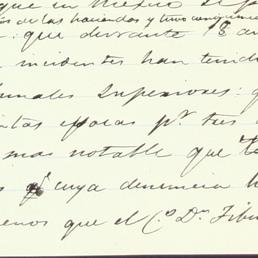 que en Mexico se
de las haciendas y tuvo consecuencia
: que durante 13 an
incidentes han tenid
unales Superiores: q
intas epocas pr. tres
mas notable que
cuya denuncia h
enos que el C.o Dn. Tibu